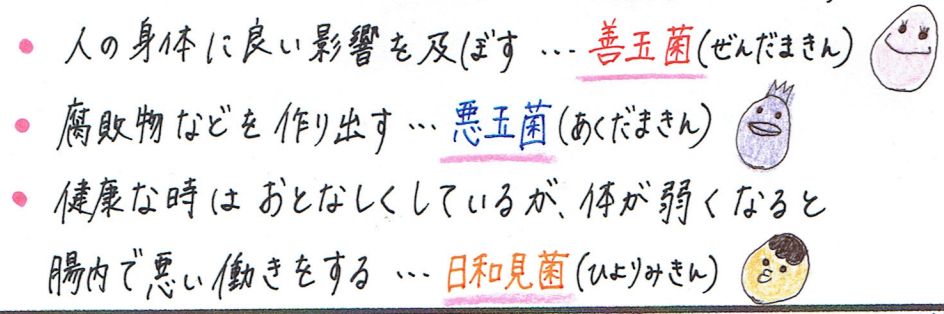 • 人の身体に良い影響を及ぼす … 善玉菌(ぜんだまきん)
• 腐敗物などを作り出す … 悪玉菌(あくだまきん)
• 健康な時はおとなしくしているが、体が弱くなると
腸内で悪い働きをする … 日和見菌(ひよりみきん)